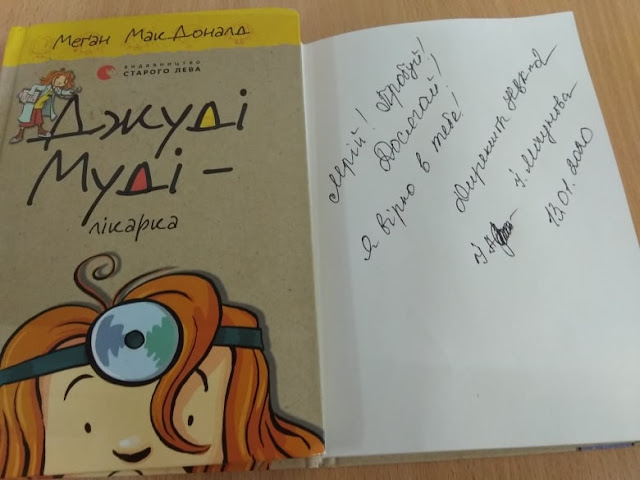 Меґан МакДоналд
видавництво
СТАРОГО ЛЕВА
Джуді
Муді –
лікарка
Мрій! Пробуй!
Досягай!
Я вірю в тебе!
Директор
13.01.2020